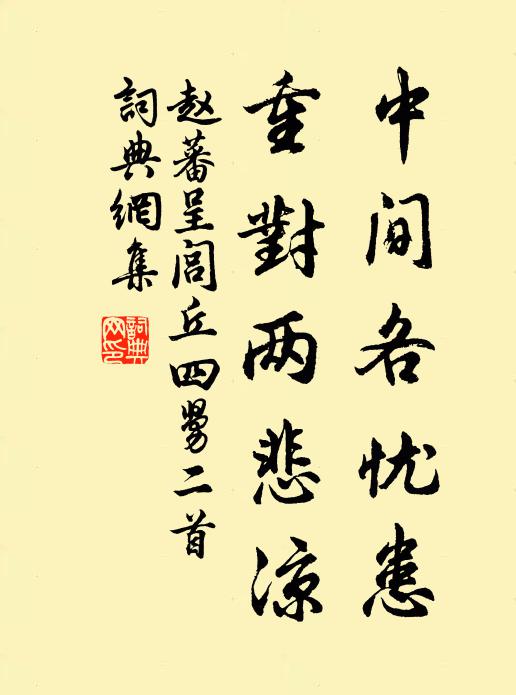 中间各忧患
重對两悲凉
赵蕃呈闾丘四舅二首
詞典網集
詞典网印